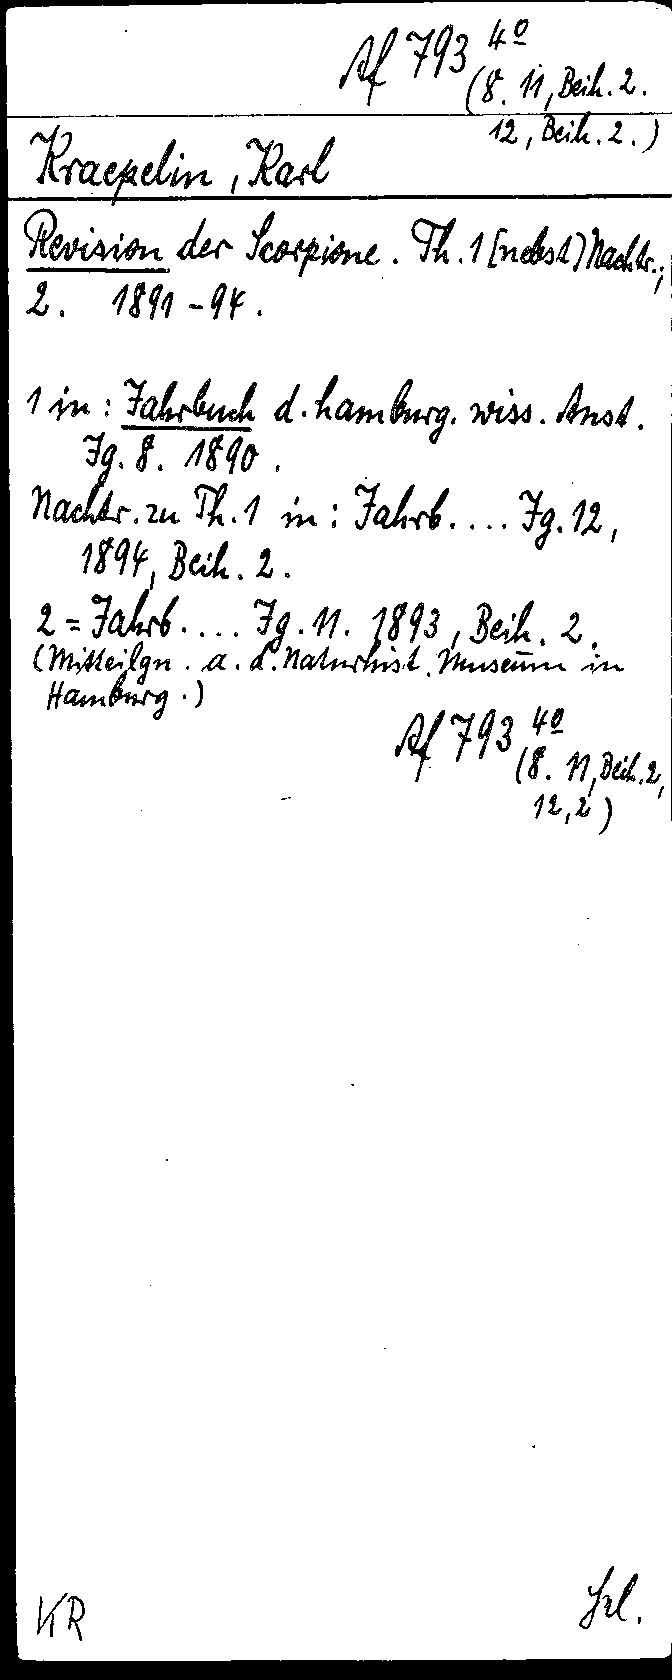 Af 793 4º
(8. 11, Beih. 2.
12, Beih. 2.)
Kraepelin, Karl
Revision der Scorpione. Th. 1 [nebst] Nachtr.;
2. 1891-94.
1 in: Jahrbuch d. hamburg. wiss. Anst.
Jg. 8. 1890.
Nachtr. zu Th. 1 in: Jahrb.... Jg. 12,
1894, Beih. 2.
2 = Jahrb.... Jg. 11. 1893, Beih. 2.
(Mitteilgn. a. d. Naturhist. Museum in
Hamburg.)
Af 793 4º
(8. 11, Beih. 2,
12, 2)
KR